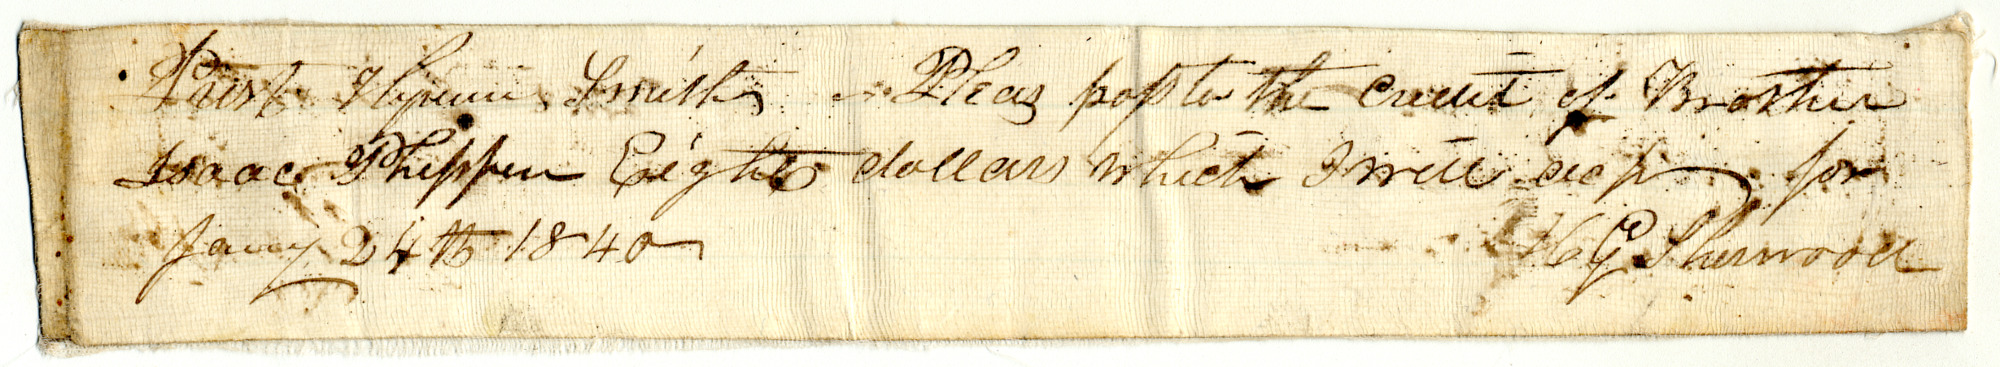 Prest Hyrum Smith Pleas pass to the credit of Brother
Isaac Phippen Eighty dollars which I will acp for
Jany 24th 1840 H G Sherwood